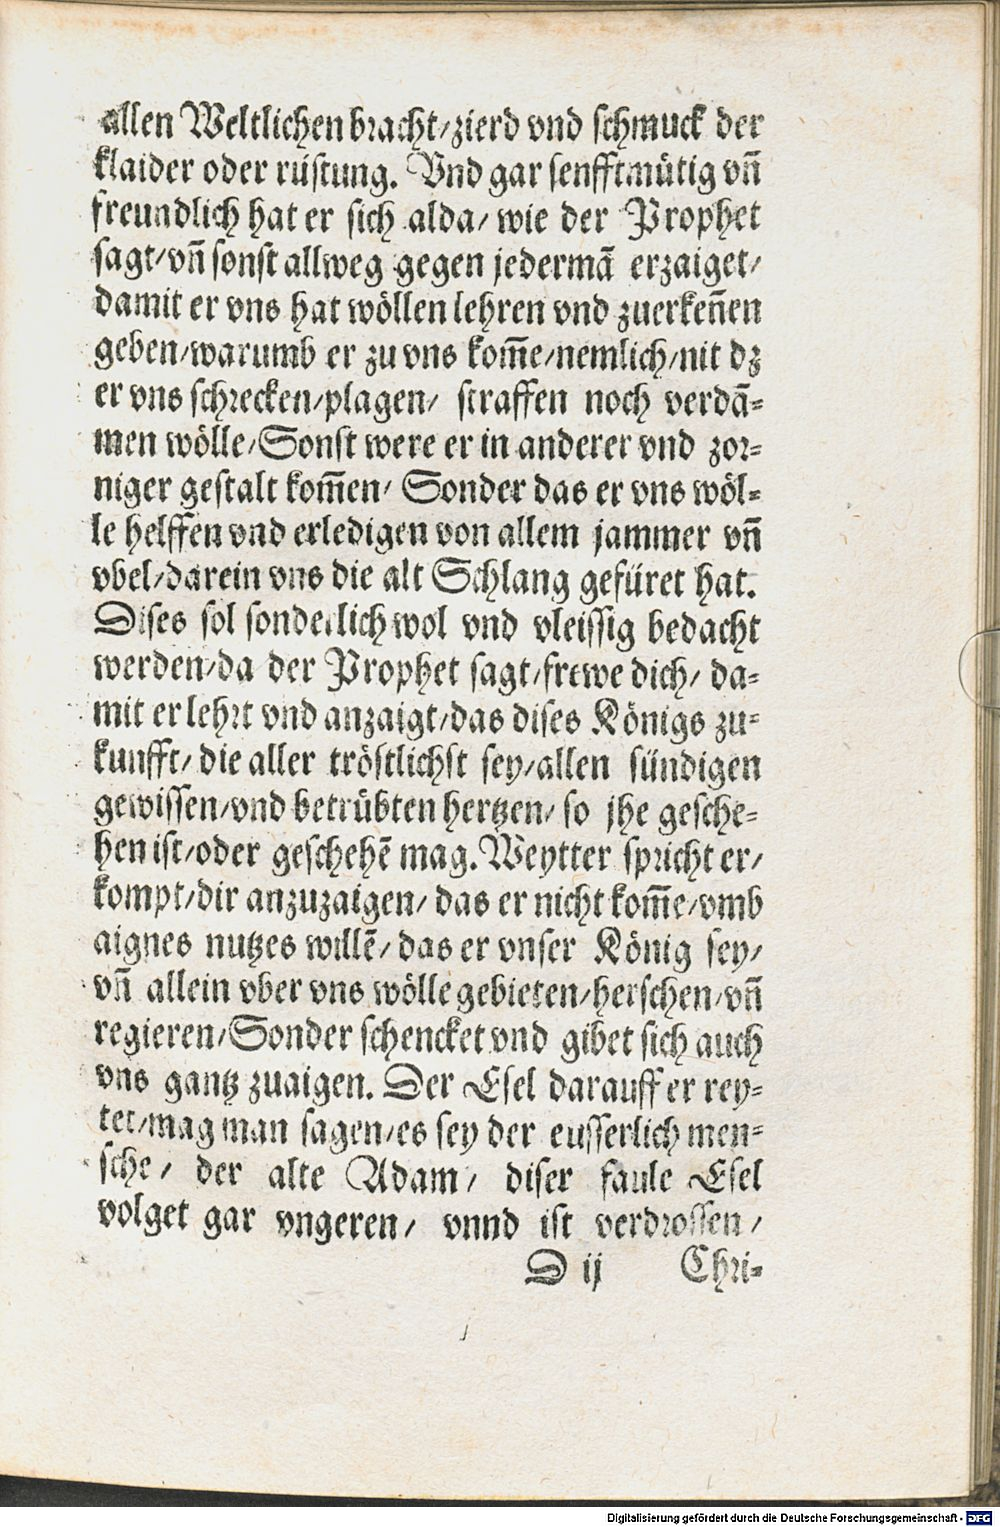 allen Weltlichen bracht/zierd vnd schmuck der
klaider oder rüstung. Vnd gar senfftmütig vñ
freundlich hat er sich alda/ wie der Prophet
sagt/vñ sonst allweg gegen jedermã erzaiget/
damit er vns hat wöllen lehren vnd zuerkeñen
geben/warumb er zu vns kom̃e/nemlich/nit dz
er vns schrecken/plagen/ straffen noch verdã-
men wölle/Sonst were er in anderer vnd zor-
niger gestalt kom̃en/ Sonder das er vns wöl-
le helffen vnd erledigen von allem jammer vñ
vbel/darein vns die alt Schlang gefüret hat.
Dises sol sonderlich wol vnd vleissig bedacht
werden/da der Prophet sagt/frewe dich/ da-
mit er lehrt vnd anzaigt/das dises Königs zu-
kunfft/ die aller tröstlichst sey/allen sündigen
gewissen/vnd betrübten hertzen/ so jhe gesche-
hen ist/oder geschehẽ mag. Weytter spricht er/
kompt/dir anzuzaigen/ das er nicht kom̃e/vmb
aignes nutzes willẽ/ das er vnser König sey/
vñ allein vber vns wölle gebieten/herschen/vñ
regieren/Sonder schencket vnd gibet sich auch
vns gantz zuaigen. Der Esel darauff er rey-
tet/mag man sagen/es sey der eusserlich men-
sche/ der alte Adam/ diser faule Esel
volget gar vngeren/ vnnd ist verdrossen/
D ij Chri-
Digitalisierung gefördert durch die Deutsche Forschungsgemeinschaft - DFG